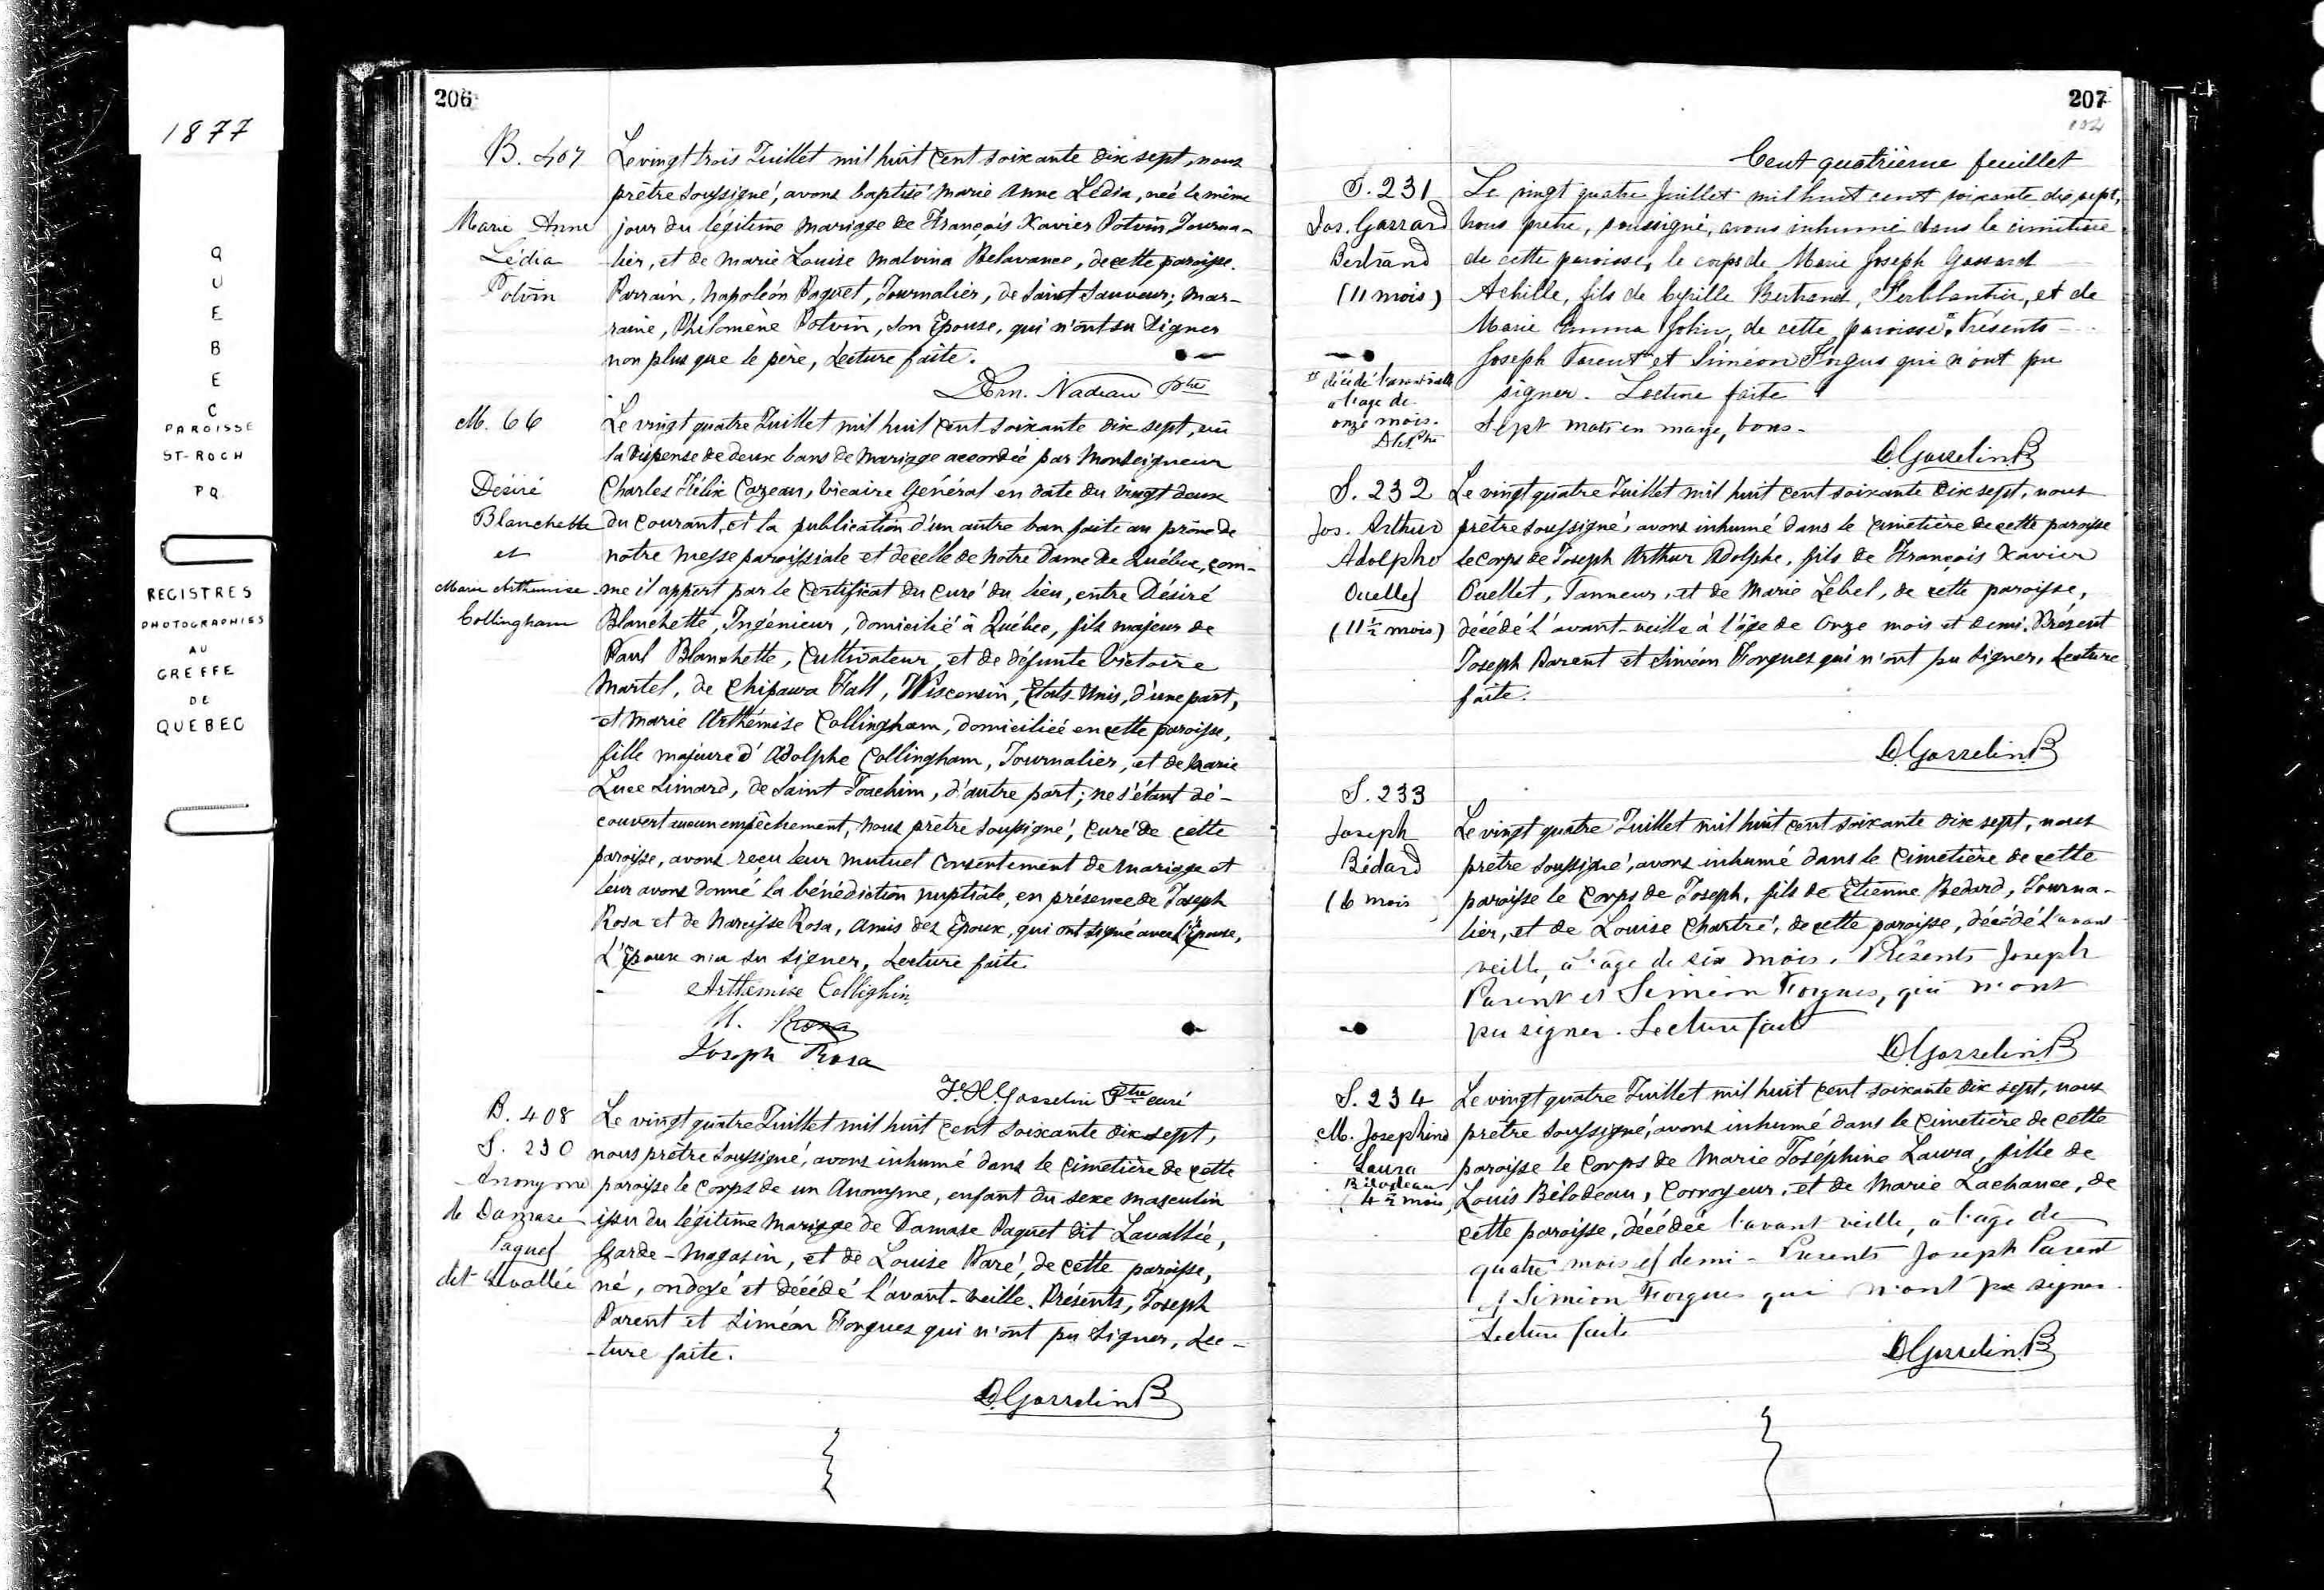 1877
QUEBEC
PAROISSE
ST-ROCH
P.Q.
REGISTRES
PHOTOGRAPHIES
AU
GREFFE
DE
QUEBEC
206
B. 407
Marie Anne
Lédia
Potvin
Le vingt trois Juillet mil huit cent soixante dix sept, nous
prêtre soussigné, avons baptisé Marie Anne Lédia, née le même
jour du légitime mariage de François Xavier Potvin, Journa-
lier, et de Marie Louise Malvina Belavance, de cette paroisse.
Parrain, Napoléon Paquet, Journalier, de Saint Sauveur; mar-
raine, Philomène Potvin, son Epouse, qui n'ont su signer
non plus que le père, Lecture faite.
Nadeau Ptre
M. 66
Désiré
Blanchette
et
Marie Arthemise
Collingham
Le vingt quatre Juillet mil huit cent soixante dix sept, vu
la dispense de deux bans de mariage accordée par Monseigneur
Charles Félix Cazeau, Vicaire Général en date du vingt deux
du courant, et la publication d'un autre ban faite au prône de
notre messe paroissiale et de celle de Notre Dame de Québec, com-
me il appert par le certificat du curé du lieu, entre Désiré
Blanchette, Ingénieur, domicilié à Québec, fils majeur de
Paul Blanchette, Cultivateur, et de défunte Victoire
Martel, de Chipawa Fall, Wisconsin, Etats Unis, d'une part,
et Marie Arthémise Collingham, domiciliée en cette paroisse,
fille majeure d'Adolphe Collingham, Journalier, et de Marie
Luce Simard, de Saint Joachim, d'autre part; ne s'étant dé-
couvert aucun empêchement, nous prêtre soussigné, curé de cette
paroisse, avons reçu leur mutuel consentement de mariage et
leur avons donné la bénédiction nuptiale, en présence de Joseph
Rosa et de Narcisse Rosa, amis des Epoux, qui ont signé avec l'Epouse,
L'Epoux n'a su signer, Lecture faite.
Arthemise Collighin
N. Rosa
Joseph Rosa
F. H. Gosselin Ptre curé
B. 408
S. 230
Anonyme
de Damase
Paquet
dit Lavallée
Le vingt quatre Juillet mil huit cent soixante dix sept,
nous prêtre soussigné, avons inhumé dans le cimetière de cette
paroisse le corps de un Anonyme, enfant du sexe masculin
issu du légitime mariage de Damase Paquet dit Lavallée,
Garde-magasin, et de Louise Paré, de cette paroisse,
né, ondoyé et décédé l'avant-veille. Présents, Joseph
Parent et Siméon Forgues qui n'ont pu signer, Lec-
-ture faite.
D. Gosselin P
207
104
Cent quatrième feuillet
S. 231
Jos. Gassard
Bertrand
(11 mois)
Le vingt quatre Juillet mil huit cent soixante dix sept,
nous prêtre, soussigné, avons inhumé dans le cimetière
de cette paroisse, le corps de Marie Joseph Gassard
Achille, fils de Cyrille Bertrand, Ferblantier, et de
Marie Emma John, de cette paroisse. Présents
Joseph Parent et Siméon Forgus qui n'ont pu
signer. Lecture faite
Sept mots en marge, bons.
décédé l'avant veille
a l'age de
onze mois.
D. Gosselin P
S. 232
Jos. Arthur
Adolphe
Ouellet
(11 1/2 mois)
Le vingt quatre Juillet mil huit cent soixante dix sept, nous
prêtre soussigné, avons inhumé dans le cimetière de cette paroisse
le corps de Joseph Arthur Adolphe, fils de François Xavier
Ouellet, Tanneur, et de Marie Lebel, de cette paroisse,
décédé l'avant-veille à l'âge de onze mois et demi. Présent
Joseph Parent et Siméon Forgues qui n'ont pu signer, Lecture
faite.
D. Gosselin P
S. 233
Joseph
Bédard
(6 mois
Le vingt quatre Juillet mil huit cent soixante dix sept, nous
prêtre soussigné, avons inhumé dans le cimetière de cette
paroisse le corps de Joseph, fils de Etienne Bedard, Journa-
lier, et de Louise Chartré, de cette paroisse, décédé l'avant
veille, a l'âge de six mois. Présents Joseph
Parent et Simeon Forgues, qui n'ont
pu signer. Lecture faite
D. Gosselin P
S. 234
M. Josephine
Laura
Bilodeau
(4 1/2 mois)
Le vingt quatre Juillet mil huit cent soixante dix sept, nous
prêtre soussigné, avons inhumé dans le cimetière de cette
paroisse le corps de Marie Joséphine Laura, fille de
Louis Bélodeau, Corroyeur, et de Marie Lachance, de
cette paroisse, décédée l'avant veille, a l'age de
quatre mois et demi - Presents Joseph Parent
et Simeon Forgues qui n'ont pu signer.
Lecture faite
D. Gosselin P